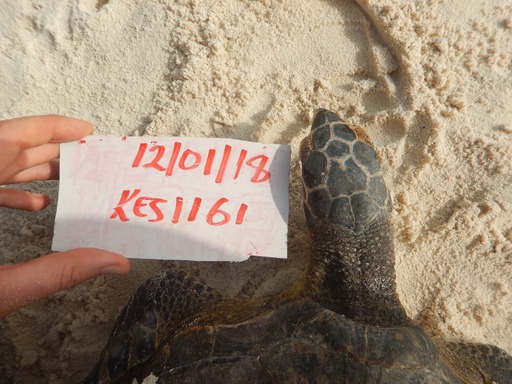 12/01/18
KES1161